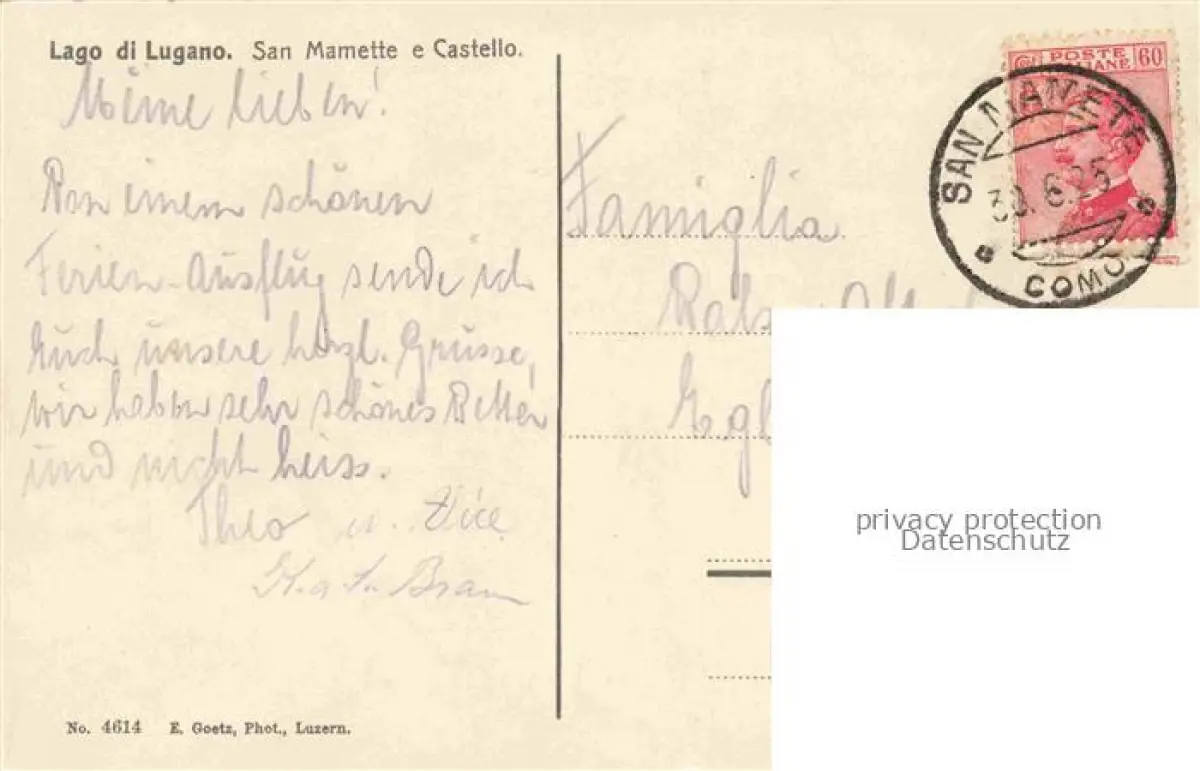 Lago di Lugano. San Mamette e Castello.
Meine lieben!
Von einem schönen
Ferien-Ausflug sende ich
Euch unsere herzl. Grüsse,
wir haben sehr schönes Wetter
und nicht heiss.
Theo u.
No. 4614 E. Goetz, Phot., Luzern.
POSTE
60
SAN MAMETE
30.6.25
COMO
Famiglia
privacy protection
Datenschutz